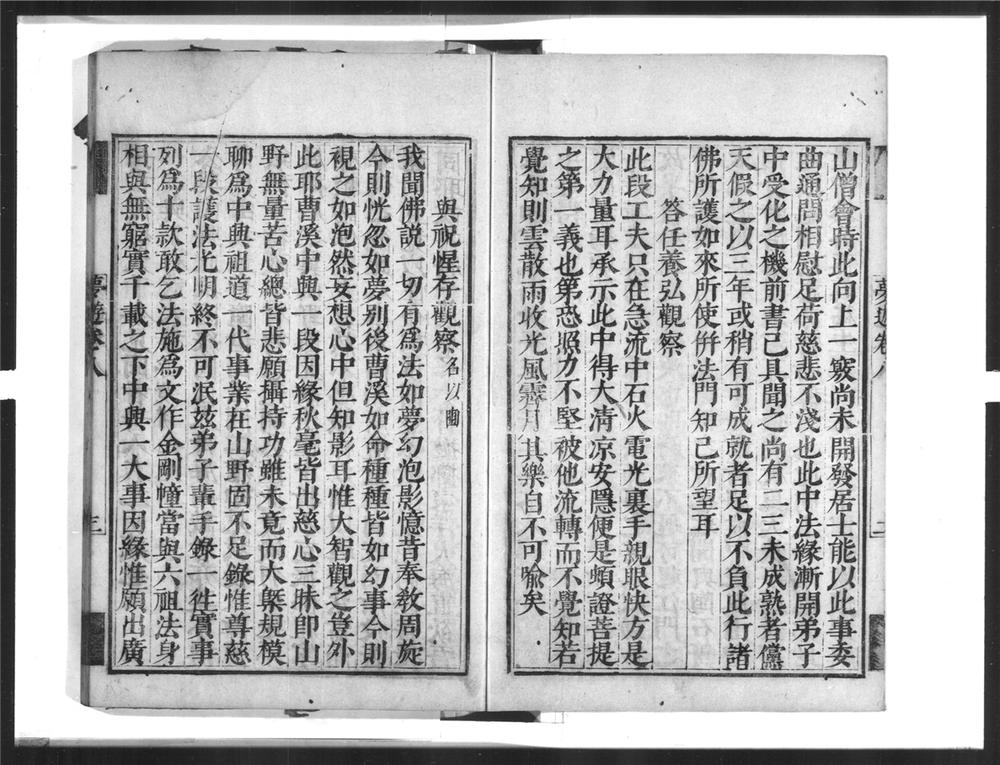 山僧會時此向上一竅尚未開發居士能以此事委
曲通問相慰足荷慈悲不淺也此中法緣漸開弟子
中受化之機前書已具聞之尚有二三未成熟者儻
天假之以三年或稍有可成就者足以不負此行諸
佛所護如來所使併法門知己所望耳
答任養弘觀察
此段工夫只在急流中石火電光裏手親眼快方是
大力量耳承示此中得大清凉安隱便是頓證菩提
之第一義也第恐照力不堅被他流轉而不覺知若
覺知則雲散雨收光風霽月其樂自不可喻矣
夢遊卷八
二
與祝惺存觀察名以豳
我聞佛說一切有爲法如夢幻泡影憶昔奉敎周旋
今則恍忽如夢別後曹溪如命種種皆如幻事今則
視之如泡然妄想心中但知影耳惟大智觀之豈外
此耶曹溪中興一段因緣秋毫皆出慈心三昧卽山
野無量苦心總皆悲願攝持功雖未竟而大槩規模
聊爲中興祖道一代事業在山野固不足錄惟尊慈
一段護法光明終不可泯茲弟子輩手錄一徃實事
列爲十款敢乞法施爲文作金剛幢當與六祖法身
相與無窮實千載之下中興一大事因緣惟願出廣
夢遊卷八
三